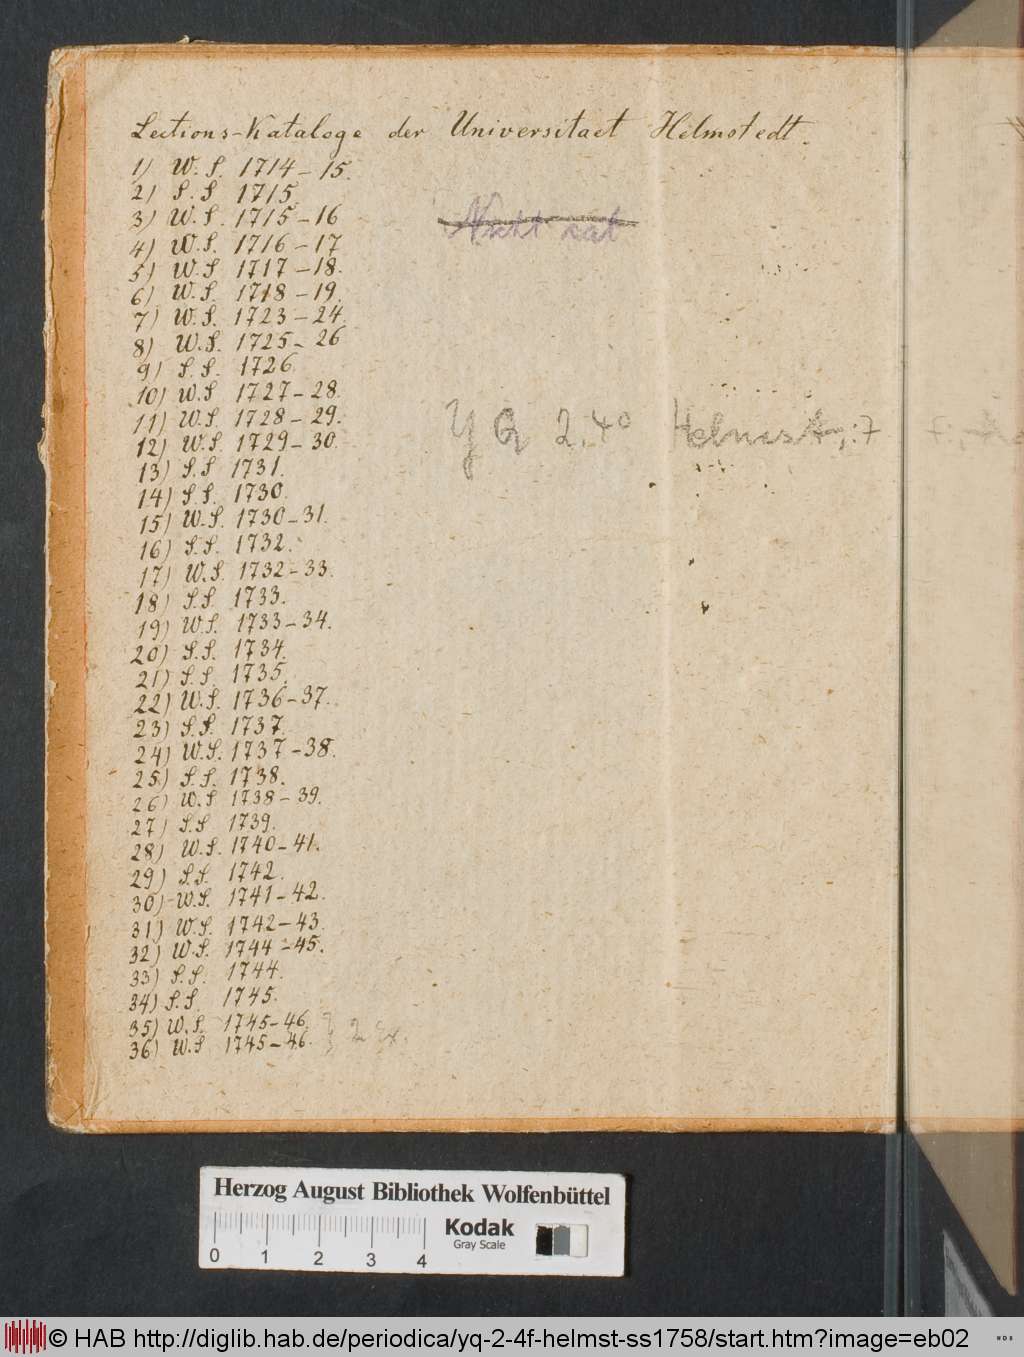 Lections-Kataloge der Universitaet Helmstedt.
1) W. S. 1714-15.
2) S. S 1715.
3) W. S. 1715-16
4) W. S. 1716-17
5) W. S 1717-18.
6) W. S. 1718-19.
7) W. S. 1723-24.
8) W. S. 1725-26
9) S. S. 1726.
10) W. S 1727-28.
11) W. S. 1728-29.
12) W. S. 1729-30.
13) S. S 1731.
14) S. S. 1730.
15) W. S. 1730-31.
16) S. S. 1732.
17) W. S. 1732-33.
18) S. S. 1733.
19) W. S. 1733-34.
20) S. S. 1734.
21) S. S. 1735.
22) W. S. 1736-37.
23) S. S. 1737.
24) W. S. 1737-38.
25) S. S. 1738.
26) W. S 1738-39.
27) S. S 1739.
28) W. S. 1740-41.
29) S. S. 1742.
30) W. S. 1741-42.
31) W. S. 1742-43.
32) W. S. 1744-45.
33) S. S. 1744.
34) S. S. 1745.
35) W. S. 1745-46.
36) W. S 1745-46. } 2 Ex.
Nicht kat
YQ 2.4° Helmst.
Herzog August Bibliothek Wolfenbüttel
0 1 2 3 4
Kodak
Gray Scale
© HAB http://diglib.hab.de/periodica/yq-2-4f-helmst-ss1758/start.htm?image=eb02
WDB